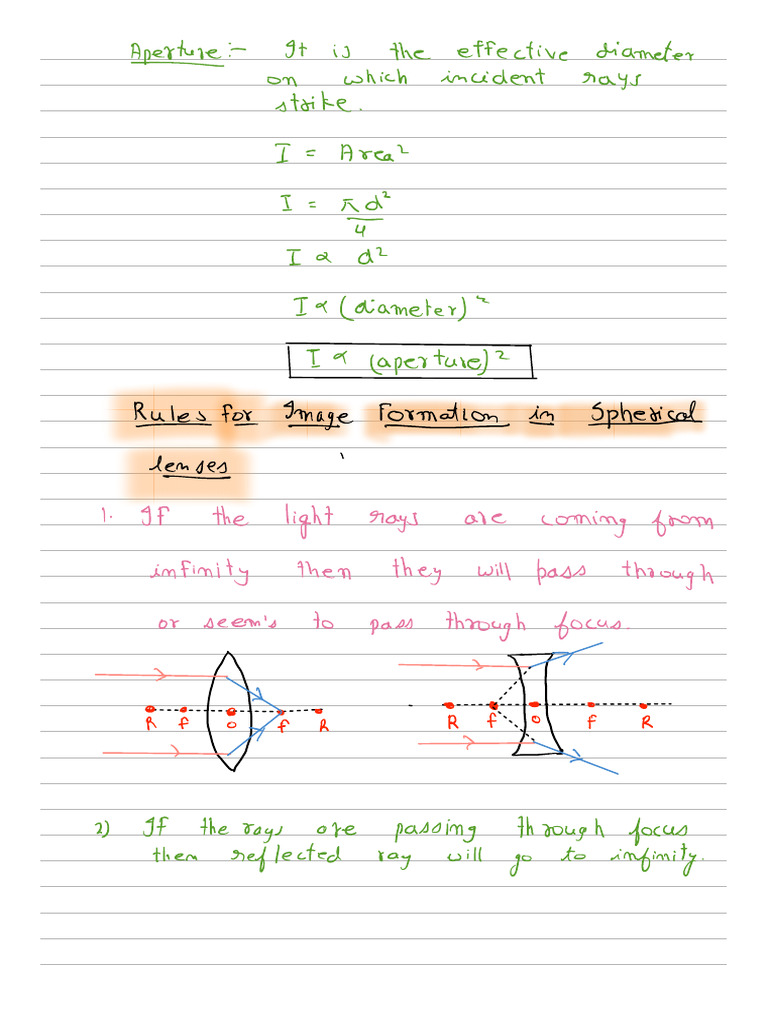 Aperture:- It is the effective diameter
on which incident rays
strike.
I = Area²
I = πd²/4
I ∝ d²
I ∝ (diameter)²
I ∝ (aperture)²
Rules for Image Formation in Spherical
lenses
1. If the light rays are coming from
infinity then they will pass through
or seem's to pass through focus.
R f O f R
R f O f R
2) If the rays are passing through focus
then reflected ray will go to infinity.